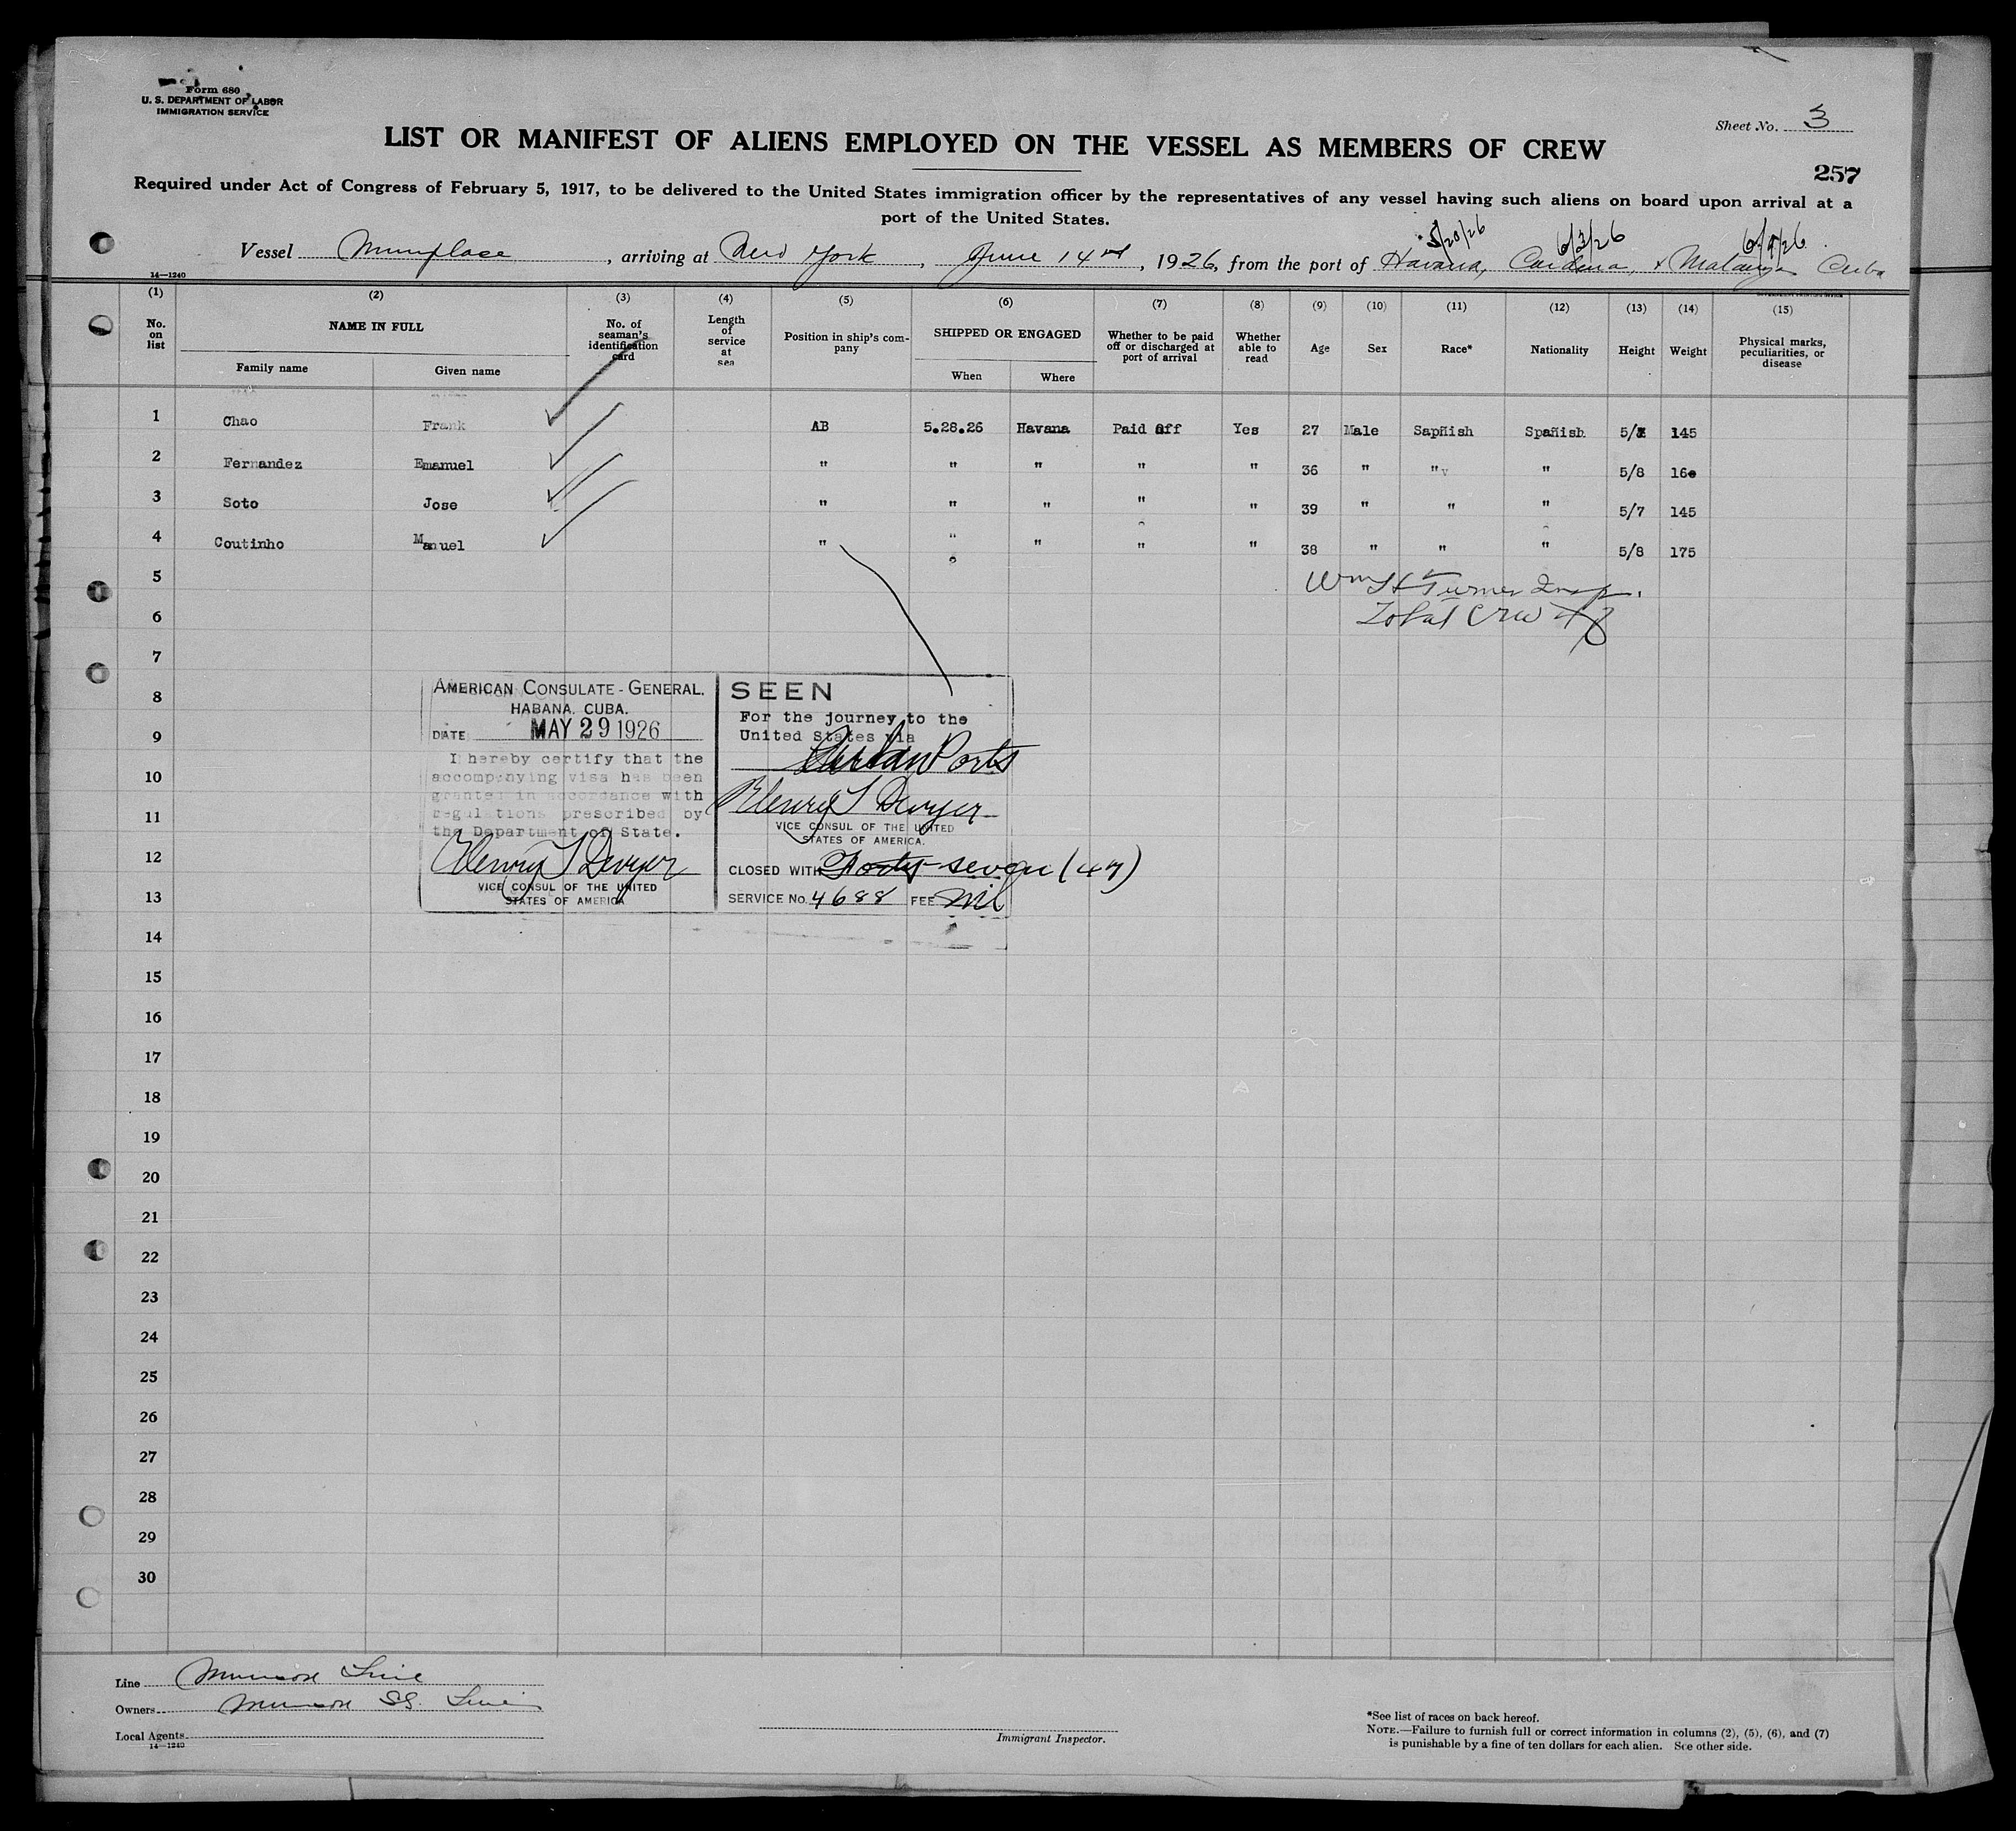 Form 680
U. S. DEPARTMENT OF LABOR
IMMIGRATION SERVICE
Sheet No. 3
LIST OR MANIFEST OF ALIENS EMPLOYED ON THE VESSEL AS MEMBERS OF CREW
257
Required under Act of Congress of February 5, 1917, to be delivered to the United States immigration officer by the representatives of any vessel having such aliens on board upon arrival at a
port of the United States.
5/20/26 6/3/26 6/9/26
Vessel Munplace, arriving at New York, June 14, 1926, from the port of Havana, Cardena, & Matanzas Cuba
14—1240
(1) (2) (3) (4) (5) (6) (7) (8) (9) (10) (11) (12) (13) (14) (15)
No. on list NAME IN FULL No. of seaman's identification card Length of service at sea Position in ship's company SHIPPED OR ENGAGED Whether to be paid off or discharged at port of arrival Whether able to read Age Sex Race* Nationality Height Weight Physical marks, peculiarities, or disease
Family name Given name When Where
1 Chao Frank AB 5.28.26 Havana Paid off Yes 27 Male Sapñish Spañish 5/ 145
2 Fernandez Emanuel " " " " " 36 " " " 5/8 160
3 Soto Jose " " " " " 39 " " " 5/7 145
4 Coutinho Manuel " " " " " 38 " " " 5/8 175
5 Wm H Turner Insp.
6 Total Crew 47
7
8
9
10
11
12
13
14
15
16
17
18
19
20
21
22
23
24
25
26
27
28
29
30
AMERICAN CONSULATE-GENERAL.
HABANA. CUBA.
DATE MAY 29 1926
I hereby certify that the
accompanying visa has been
granted in accordance with
regulations prescribed by
the Department of State.
Henry T Dwyer
VICE CONSUL OF THE UNITED
STATES OF AMERICA
SEEN
For the journey to the
United States via
Cuban Ports
Henry T Dwyer
VICE CONSUL OF THE UNITED
STATES OF AMERICA.
CLOSED WITH Forty-seven (47)
SERVICE No. 4688 FEE Nil
Line Munson Line
Owners Munson SS. Line
Local Agents
14—1240
Immigrant Inspector.
*See list of races on back hereof.
NOTE.—Failure to furnish full or correct information in columns (2), (5), (6), and (7)
is punishable by a fine of ten dollars for each alien. See other side.